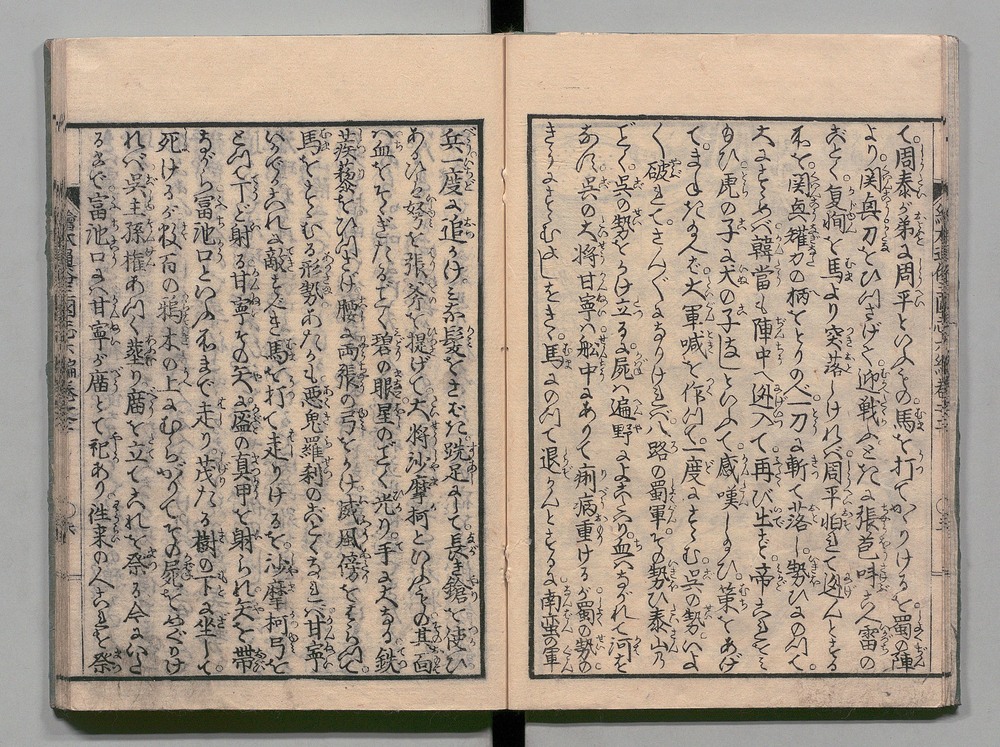 て。周泰が弟に周平といふもの馬を打てかゝりけるを蜀の陣
より関興刀をひつさげて迎戦ふときに張苞吽さけん雷の
ごとく夏恂を馬より突落しければ周平怕れて迯んとする
所を関興耀刀の柄をとりのべ一刀に斬て落し勢ひにのつて
大にすゝめば韓當も陣中へ迯入て再び出ず帝これをみ
給ひ虎の子に犬の子なしとのたまふて感嘆し給ひ策をあげ
てまねき給へば大軍喊を作つて一度にすゝむ呉の勢いよ
く破れてさんざんになりければ八路の蜀軍その勢ひ泰山の
ごとく呉の勢をかけ立る屍ハ遍野によこたハり血ハながれて河を
なす。呉の大将甘寧ハ舩中にありて痢病重けるが蜀の勢の
きりにすゝむよしをきゝ馬にのつて退かんとするに南蛮の軍
兵一度に追かけミな髪をさばき跣足にして長き鎗を使ひ
あるひハ弩を張斧を提げて大将沙摩柯といふもの其面
ハ血をそゝぎたるごとく碧の眼星のごとく光り。手に大なる鉄
蒺藜をひつさげ腰に両張の弓をかけ威風傍をはらつて
馬をすゝむる形勢あたかも悪鬼羅刹のごとくなれば甘寧
いかでかこれに敵すべき馬を打て走りけるを。沙摩柯弓を
とつて丁ど射る甘寧その矢に盔の真甲を射られ矢を帯
ながら富池口といふ所まで走り。茂たる樹の下に坐して
死けるが数百の鴉木の上にむらがりてその屍をやどかけ
れバ呉主孫権あつく葬り廟を立てこれを祭る今にいた
るまで富池口にハ甘寧が廟とて祀あり。往来の人これを祭